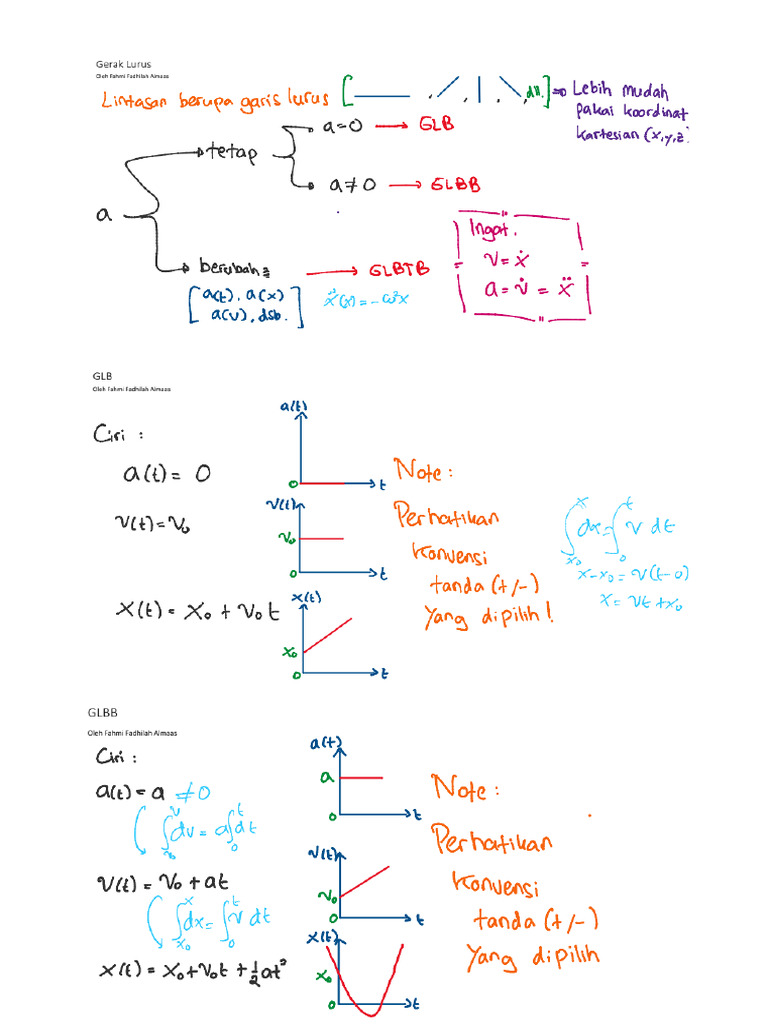 Gerak Lurus
Oleh Fahmi Fadhilah Almaas
Lintasan berupa garis lurus [ , , , , dll. ] ⇒ Lebih mudah
pakai koordinat
kartesian (x,y,z)
a
tetap
a=0 → GLB
a≠0 → GLBB
berubah²
→ GLBTB
[ a(t), a(x)
a(v), dsb. ]
ẍ(x) = -ω²x
Ingat.
v = ẋ
a = v̇ = ẍ
GLB
Oleh Fahmi Fadhilah Almaas
Ciri :
a(t) = 0
a(t)
0
t
v(t) = v₀
v(t)
v₀
0
t
x(t) = x₀ + v₀t
x(t)
x₀
0
t
Note :
Perhatikan
konvensi
tanda (+/-)
yang dipilih!
∫ₓ₀ˣ dx = ∫₀ᵗ v dt
x-x₀ = v(t-0)
x = vt + x₀
GLBB
Oleh Fahmi Fadhilah Almaas
Ciri :
a(t) = a ≠ 0
∫ᵥ₀ᵛ dv = a∫₀ᵗ dt
a(t)
a
0
t
v(t) = v₀ + at
∫ₓ₀ˣ dx = ∫₀ᵗ v dt
v(t)
v₀
0
t
x(t) = x₀ + v₀t + ½at²
x(t)
x₀
0
t
Note :
Perhatikan
konvensi
tanda (+/-)
yang dipilih